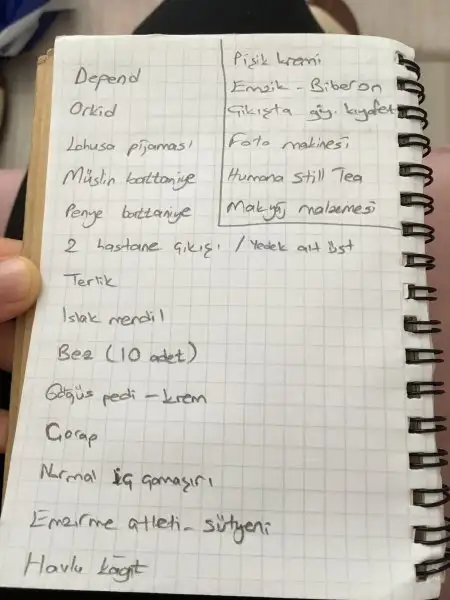 Depend
Orkid
Lohusa pijaması
Müslin battaniye
Penye battaniye
2 hastane çıkışı / Yedek alt üst
Terlik
Islak mendil
Bez (10 adet)
Göğüs pedi - krem
Çorap
Normal iç çamaşırı
Emzirme atleti - sütyeni
Havlu kağıt
Pişik kremi
Emzik - Biberon
Çıkışta giy. kıyafet
Foto makinesi
Humana Still Tea
Makyaj malzemesi